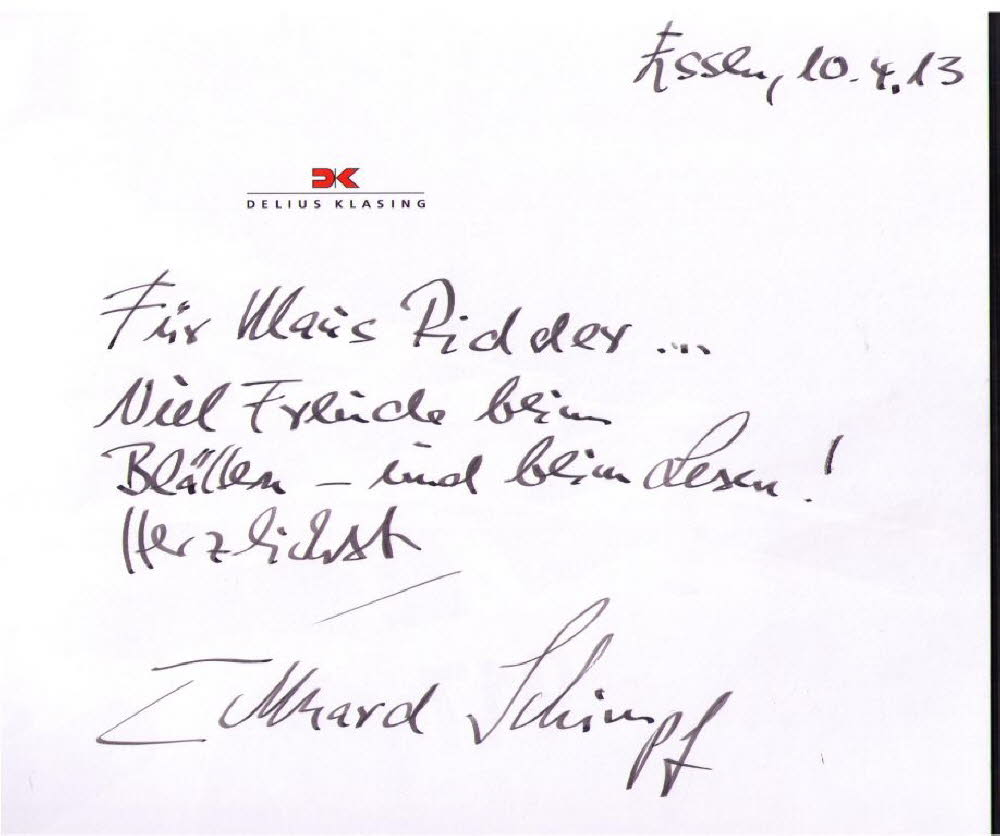 Essen, 10.4.13
DELIUS KLASING
Für Klaus Ridder ...
Viel Freude beim
Blättern – und beim Lesen!
Herzlichst
Eckhard Schimpf